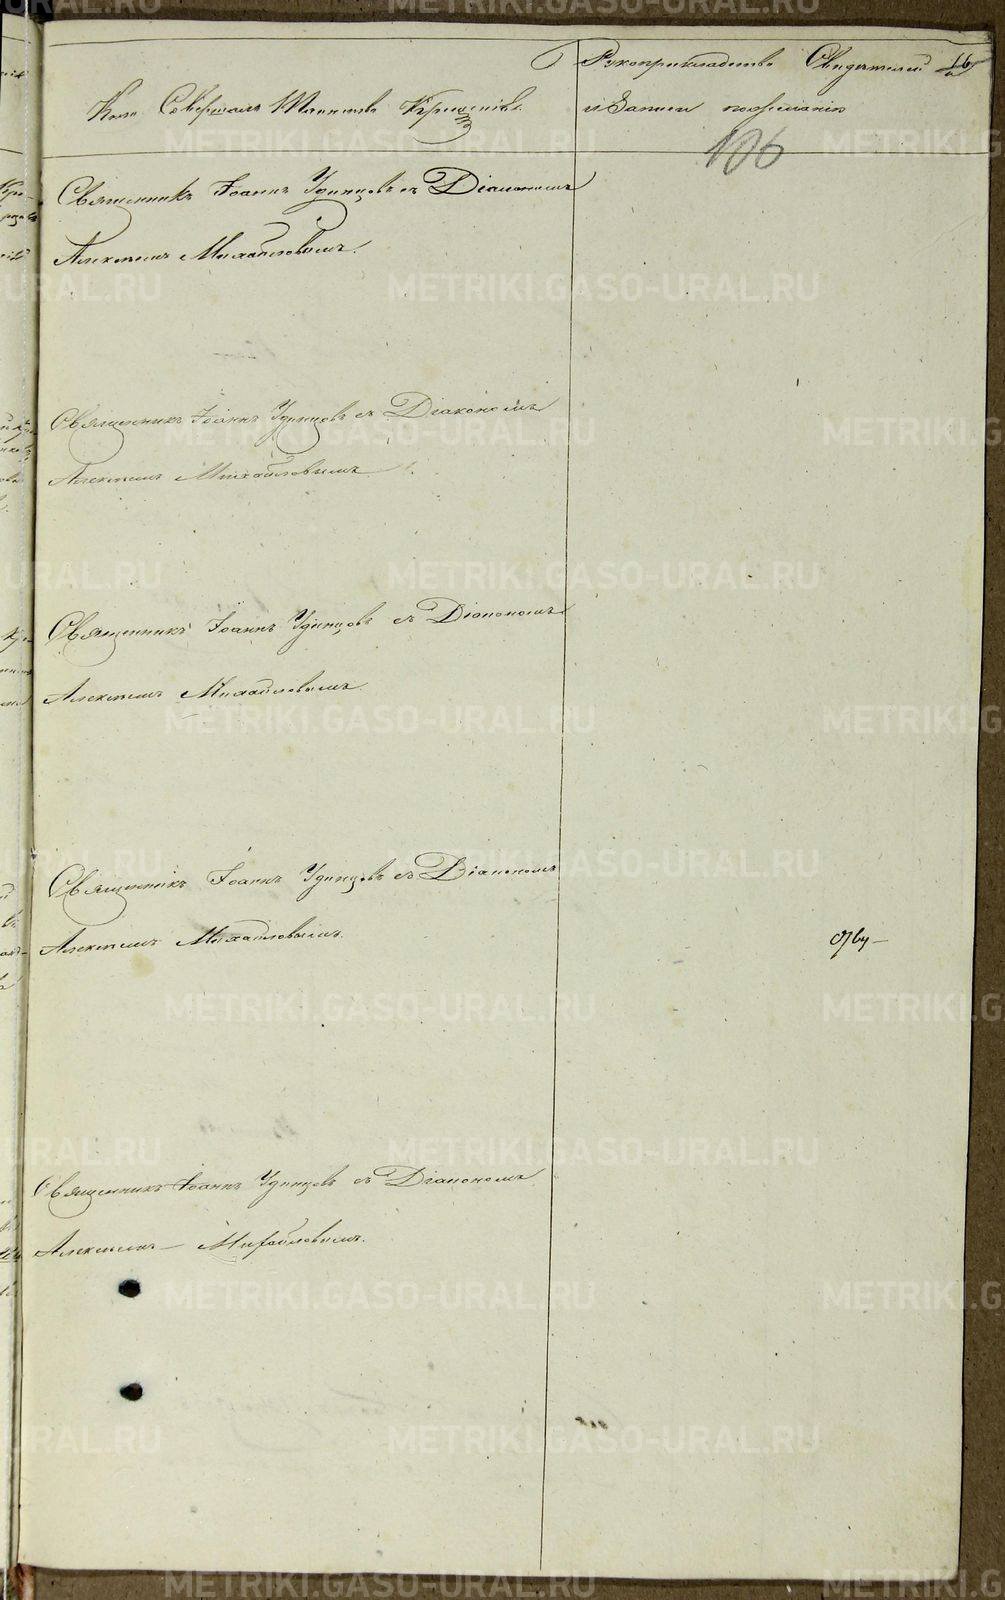 Рукоприкладство Свидетелей 16
Кто Совершалъ Таинство Крещенія.
и Записи по желанію
106
Священникъ Іоаннъ Удинцовъ съ Діакономъ
Алексѣемъ Михайловымъ.
Священникъ Іоаннъ Удинцовъ съ Діакономъ
Алексѣемъ Михайловымъ.
Священникъ Іоаннъ Удинцовъ съ Діакономъ
Алексѣемъ Михайловымъ.
Священникъ Іоаннъ Удинцовъ съ Діакономъ
Алексѣемъ Михайловымъ.
Священникъ Іоаннъ Удинцовъ съ Діакономъ
Алексѣемъ Михайловымъ.
METRIKI.GASO-URAL.RU